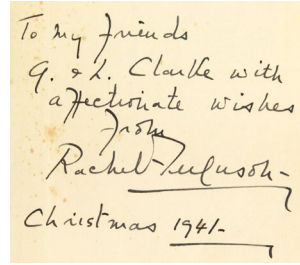 To my friends
G. & L. Clarke with
affectionate wishes
from
Rachel Ferguson -
Christmas 1941 -